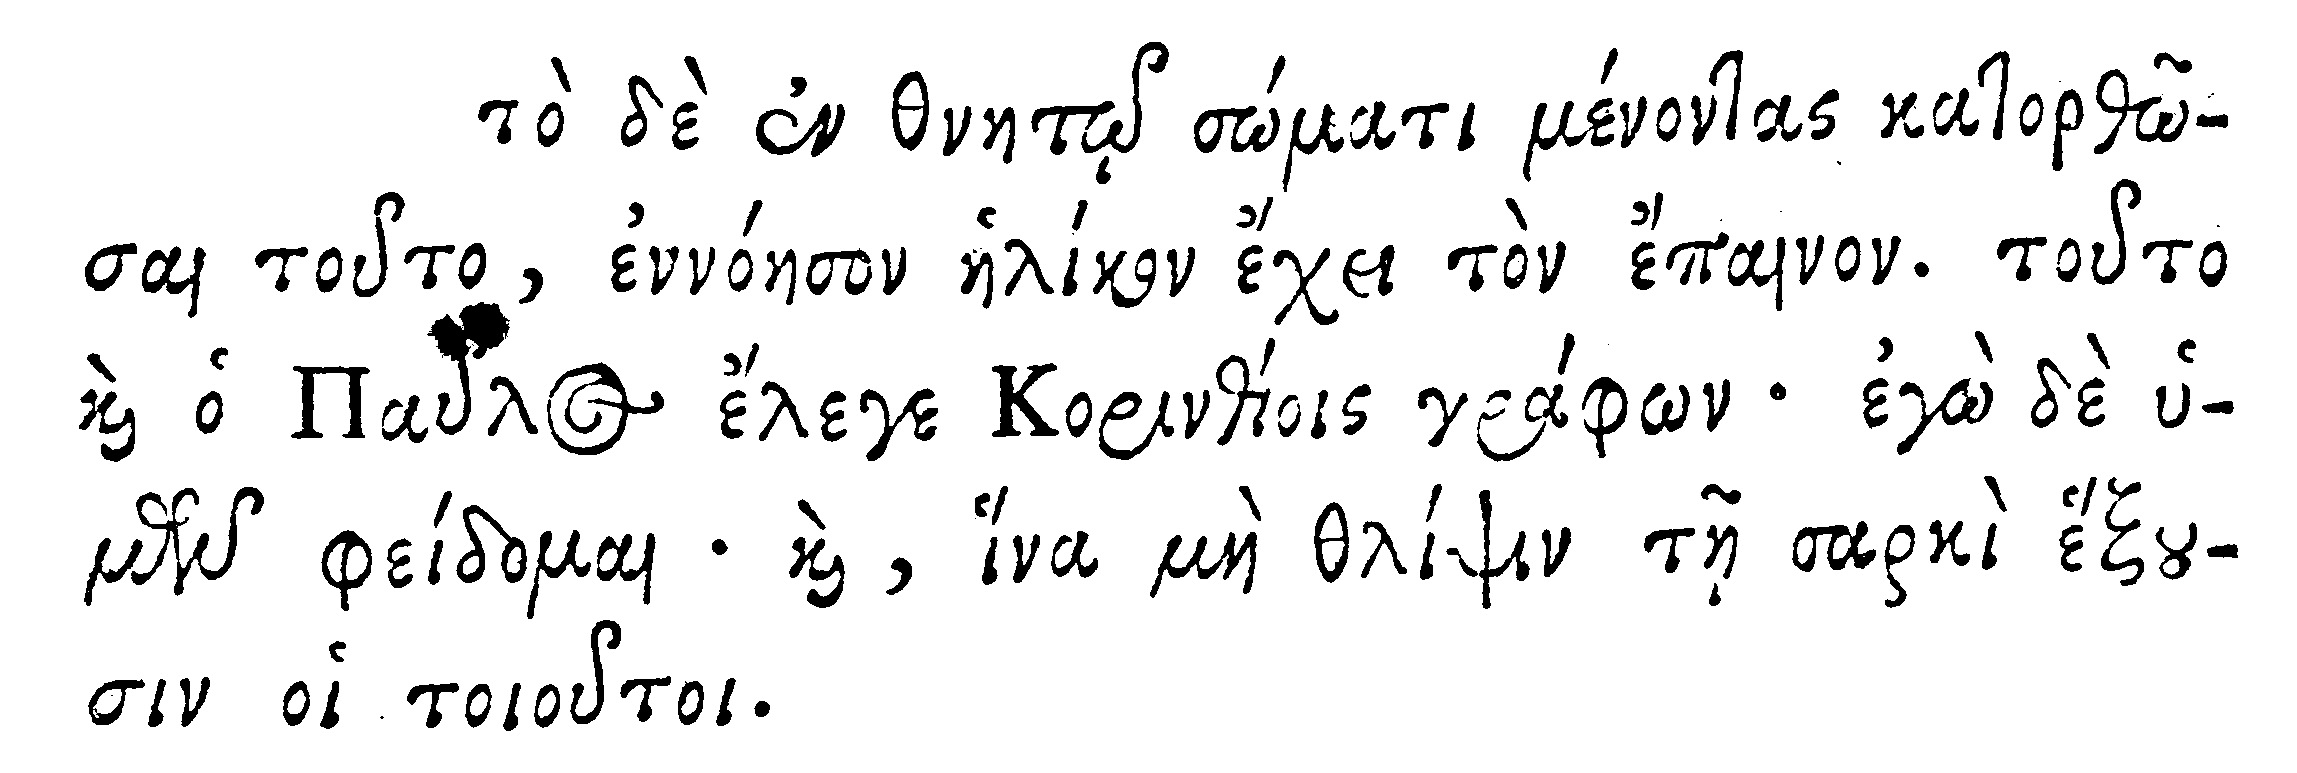 τὸ δὲ ἐν θνητῷ σώματι μένοντας κατορθῶ-
σαι τοῦτο, ἐννόησον ἡλίκον ἔχει τὸν ἔπαινον. τοῦτο
καὶ ὁ Παῦλος ἔλεγε Κορινθίοις γράφων · ἐγὼ δὲ ὑ-
μῶν φείδομαι · καὶ, ἵνα μὴ θλίψιν τῇ σαρκὶ ἕξου-
σιν οἱ τοιοῦτοι.